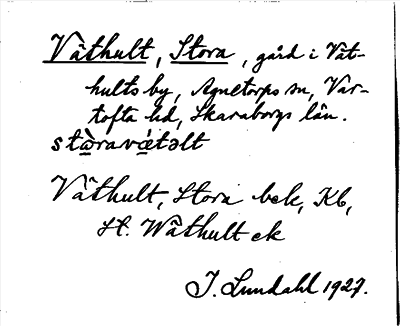 Våthult, Stora, gård i Våt-
hults by, Agnetorps sn, Var-
tofta hd, Skaraborgs län.
stɷ̀ravǿtəlt
Våthult, Stora bek, Kb,
St. Wåthult ek
I. Lundahl 1927.